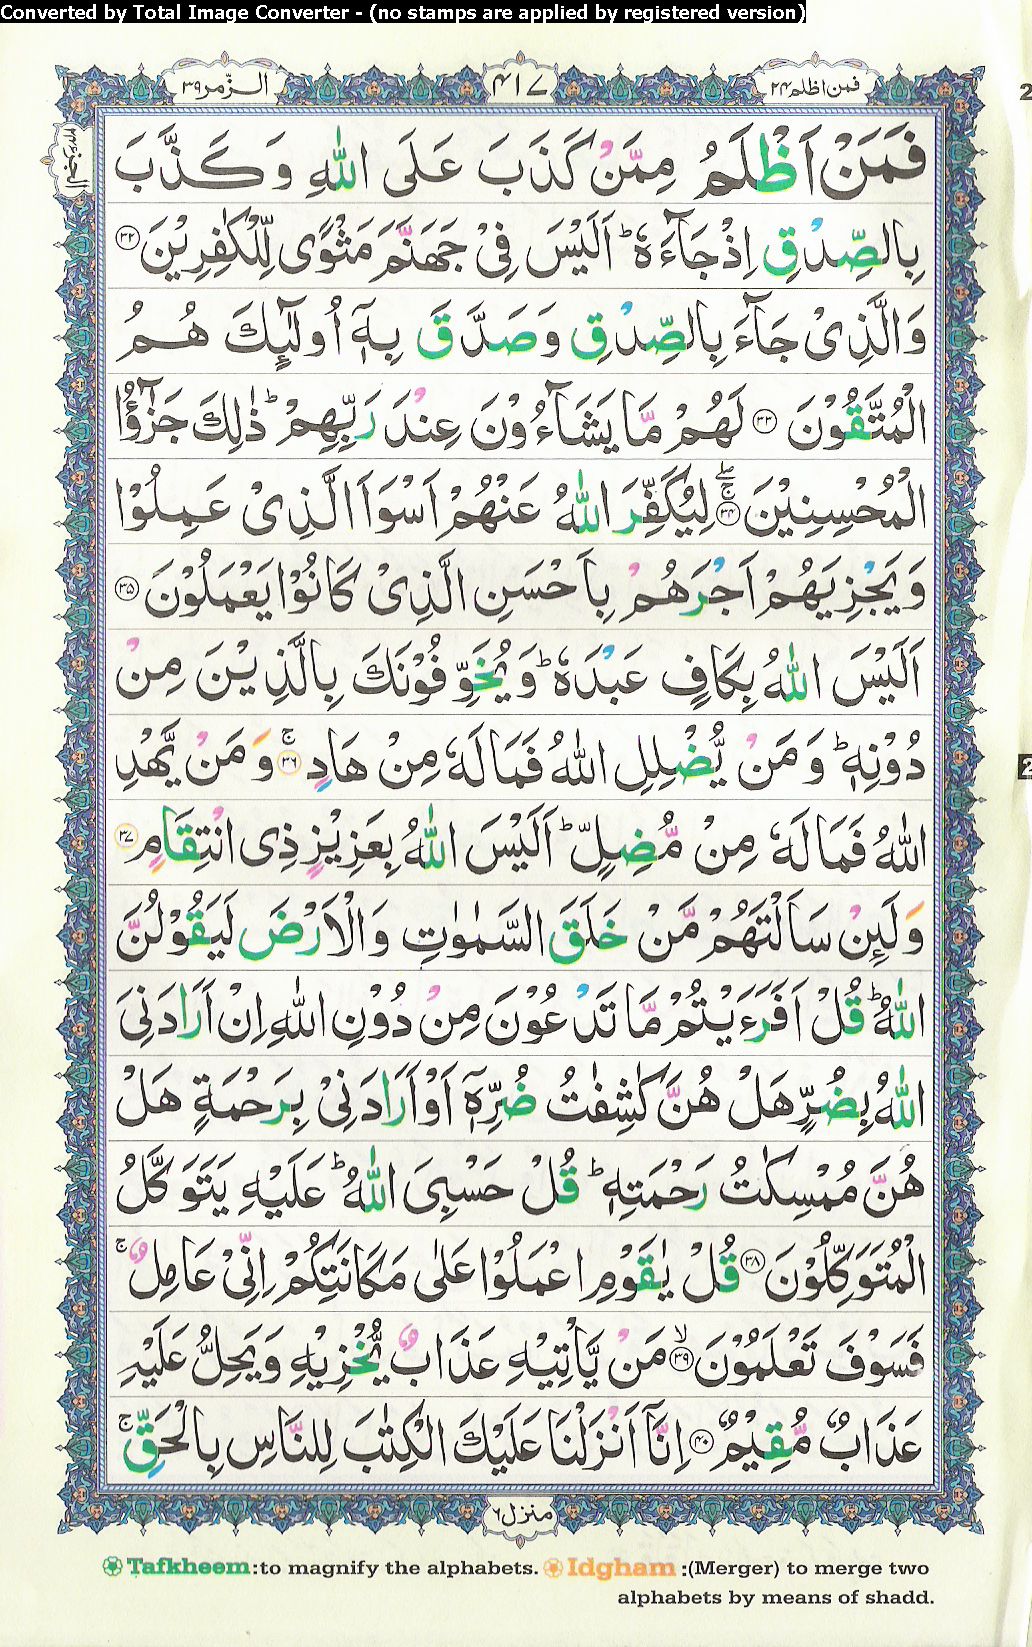 Converted by Total Image Converter - (no stamps are applied by registered version)
فمن اظلم ٢٤
٤١٧
الزّمر ٣٩
الجزء ٢٤
فَمَنْ اَظْلَمُ مِمَّنْ كَذَبَ عَلَى اللّٰهِ وَ كَذَّبَ
بِالصِّدْقِ اِذْ جَآءَهٗ ؕ اَلَيْسَ فِيْ جَهَنَّمَ مَثْوًى لِّلْكٰفِرِيْنَ ٣٢
وَالَّذِيْ جَآءَ بِالصِّدْقِ وَصَدَّقَ بِهٖۤ اُولٰٓئِكَ هُمُ
الْمُتَّقُوْنَ ٣٣ لَهُمْ مَّا يَشَآءُوْنَ عِنْدَ رَبِّهِمْ ؕ ذٰلِكَ جَزٰٓؤُا
الْمُحْسِنِيْنَ ٣٤ لِيُكَفِّرَ اللّٰهُ عَنْهُمْ اَسْوَاَ الَّذِيْ عَمِلُوْا
وَيَجْزِيَهُمْ اَجْرَهُمْ بِاَحْسَنِ الَّذِيْ كَانُوْا يَعْمَلُوْنَ ٣٥
اَلَيْسَ اللّٰهُ بِكَافٍ عَبْدَهٗ ؕ وَيُخَوِّفُوْنَكَ بِالَّذِيْنَ مِنْ
دُوْنِهٖ ؕ وَ مَنْ يُّضْلِلِ اللّٰهُ فَمَا لَهٗ مِنْ هَادٍ ٣٦ۚ وَ مَنْ يَّهْدِ
اللّٰهُ فَمَا لَهٗ مِنْ مُّضِلٍّ ؕ اَلَيْسَ اللّٰهُ بِعَزِيْزٍ ذِي انْتِقَامٍ ٣٧
وَلَئِنْ سَاَلْتَهُمْ مَّنْ خَلَقَ السَّمٰوٰتِ وَالْاَرْضَ لَيَقُوْلُنَّ
اللّٰهُ ؕ قُلْ اَفَرَءَيْتُمْ مَّا تَدْعُوْنَ مِنْ دُوْنِ اللّٰهِ اِنْ اَرَادَنِيَ
اللّٰهُ بِضُرٍّ هَلْ هُنَّ كٰشِفٰتُ ضُرِّهٖۤ اَوْ اَرَادَنِيْ بِرَحْمَةٍ هَلْ
هُنَّ مُمْسِكٰتُ رَحْمَتِهٖ ؕ قُلْ حَسْبِيَ اللّٰهُ ؕ عَلَيْهِ يَتَوَكَّلُ
الْمُتَوَكِّلُوْنَ ٣٨ قُلْ يٰقَوْمِ اعْمَلُوْا عَلٰى مَكَانَتِكُمْ اِنِّيْ عَامِلٌ ۚ
فَسَوْفَ تَعْلَمُوْنَ ٣٩ۙ مَنْ يَّاْتِيْهِ عَذَابٌ يُّخْزِيْهِ وَيَحِلُّ عَلَيْهِ
عَذَابٌ مُّقِيْمٌ ٤٠ اِنَّاۤ اَنْزَلْنَا عَلَيْكَ الْكِتٰبَ لِلنَّاسِ بِالْحَقِّ ۚ
منزل ٦
Tafkheem:to magnify the alphabets. Idgham :(Merger) to merge two
alphabets by means of shadd.